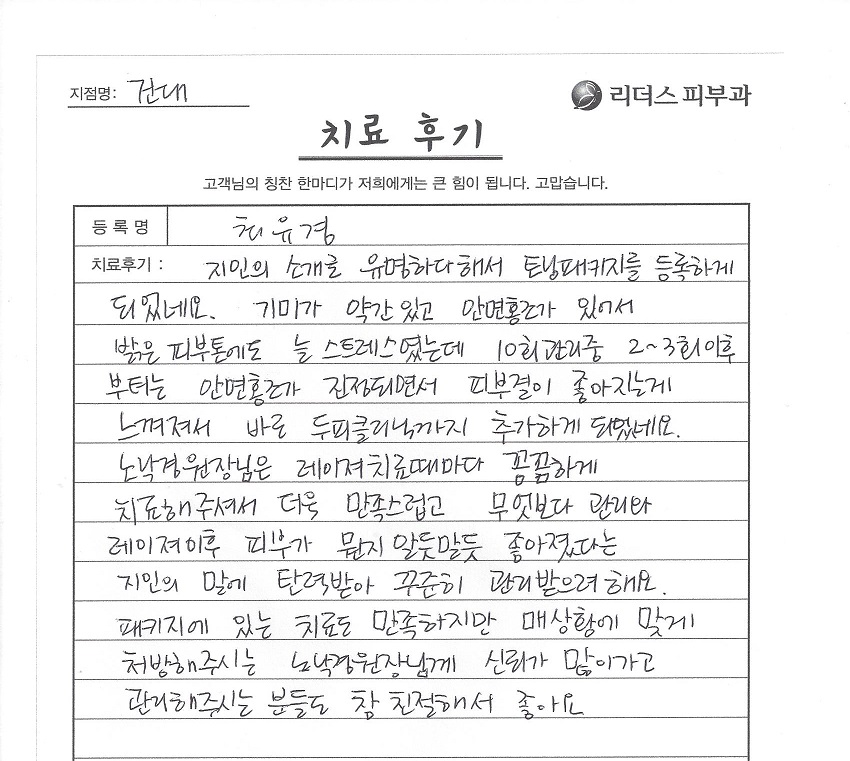 지점명: 건대
리더스 피부과
치료 후기
고객님의 칭찬 한마디가 저희에게는 큰 힘이 됩니다. 고맙습니다.
등록명 최유경
치료후기 : 지인의 소개로 유명하다해서 토닝패키지를 등록하게
되었네요. 기미가 약간있고 안면홍조가 있어서
밝은 피부톤에도 늘 스트레스였는데 10회관리중 2~3회이후
부터는 안면홍조가 진정되면서 피부결이 좋아지는게
느껴져서 바로 두피클리닉까지 추가하게 되었네요.
노낙경원장님은 레이져치료때마다 꼼꼼하게
치료해주셔서 더욱 만족스럽고 무엇보다 관리와
레이져이후 피부가 뭔지 알듯말듯 좋아졌다는
지인의 말에 탄력받아 꾸준히 관리받으려해요.
패키지에 있는 치료도 만족하지만 매상황에 맞게
처방해주시는 노낙경원장님께 신뢰가 많이가고
관리해주시는 분들도 참 친절해서 좋아요